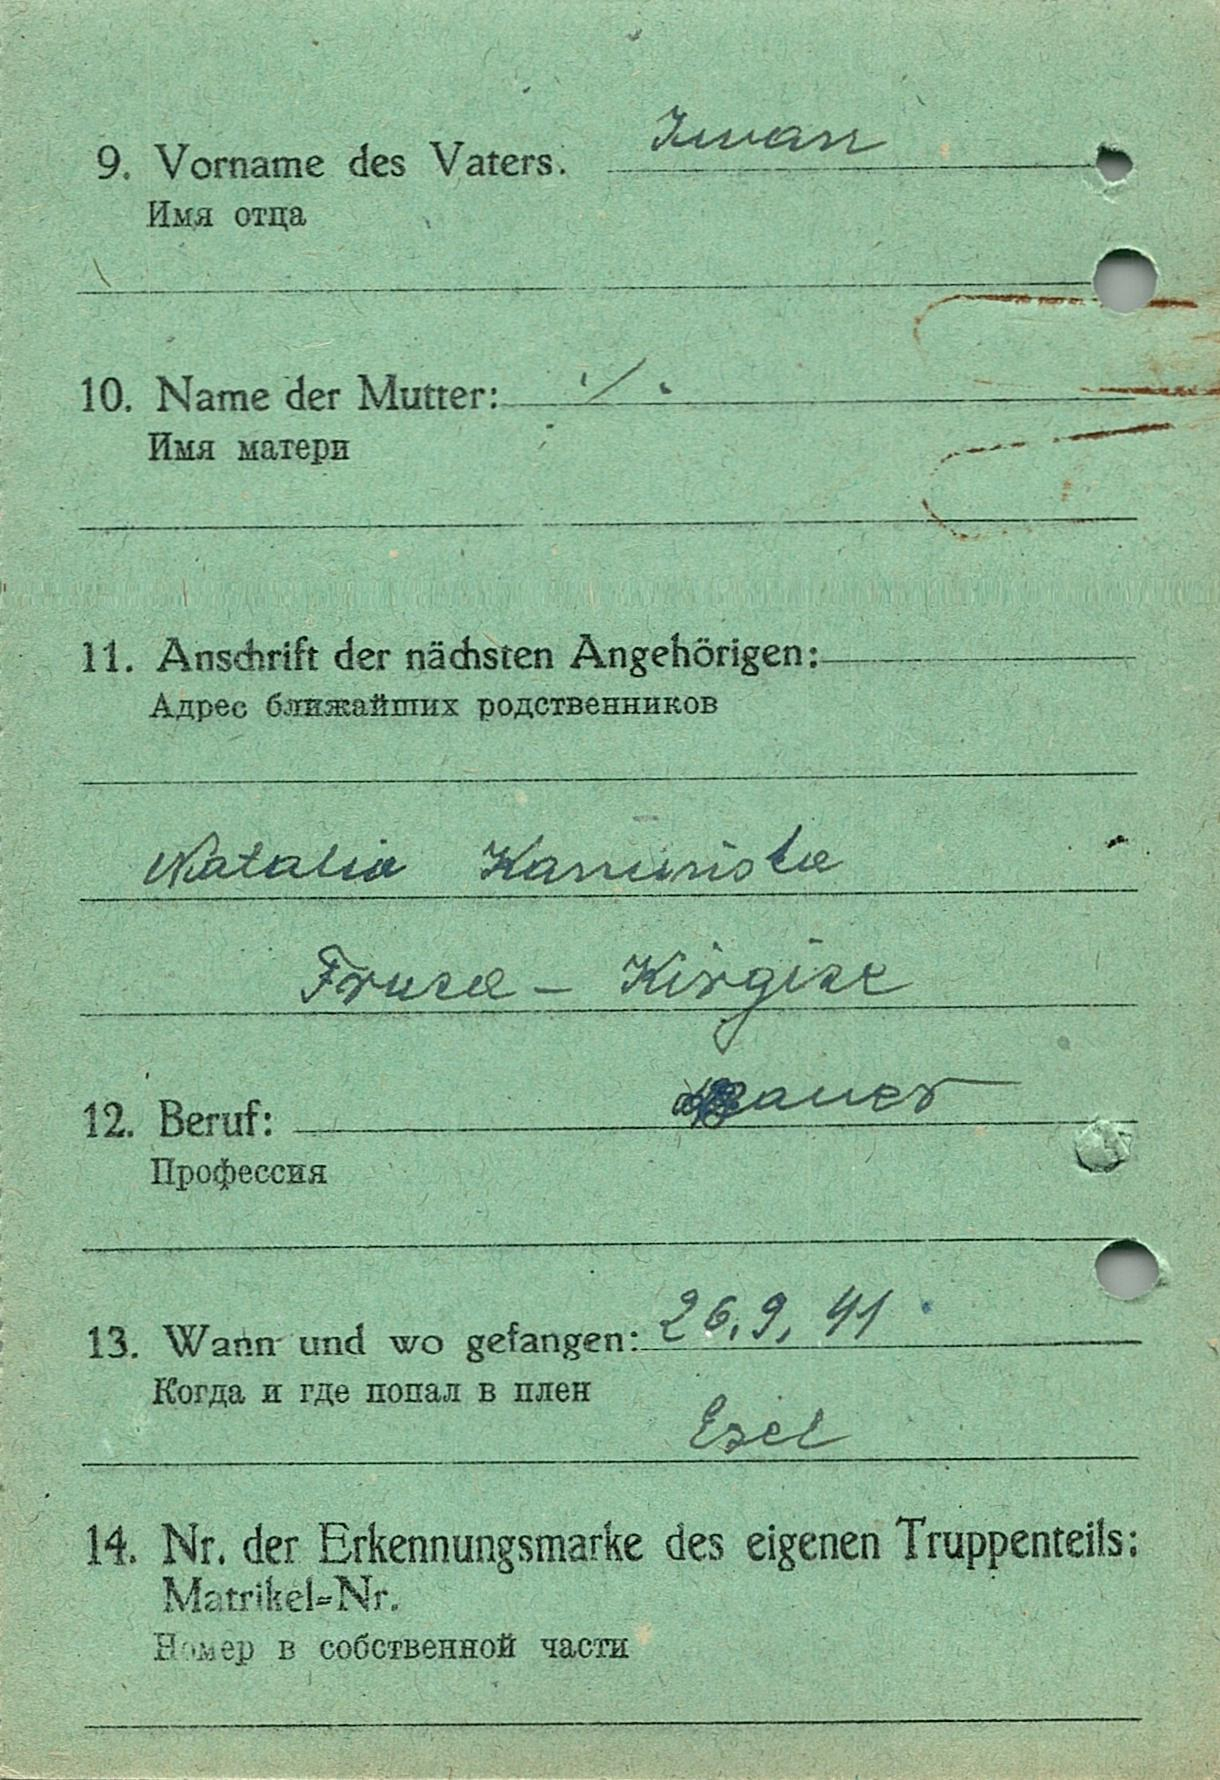 9. Vorname des Vaters. Iwan
Имя отца
10. Name der Mutter: ./.
Имя матери
11. Anschrift der nächsten Angehörigen:
Адрес ближайших родственников
Natalia
Fruse - Kirgise
12. Beruf: Bauer
Профессия
13. Wann und wo gefangen: 26.9.41
Когда и где попал в плен
Esel
14. Nr. der Erkennungsmarke des eigenen Truppenteils:
Matrikel=Nr.
Номер в собственной части